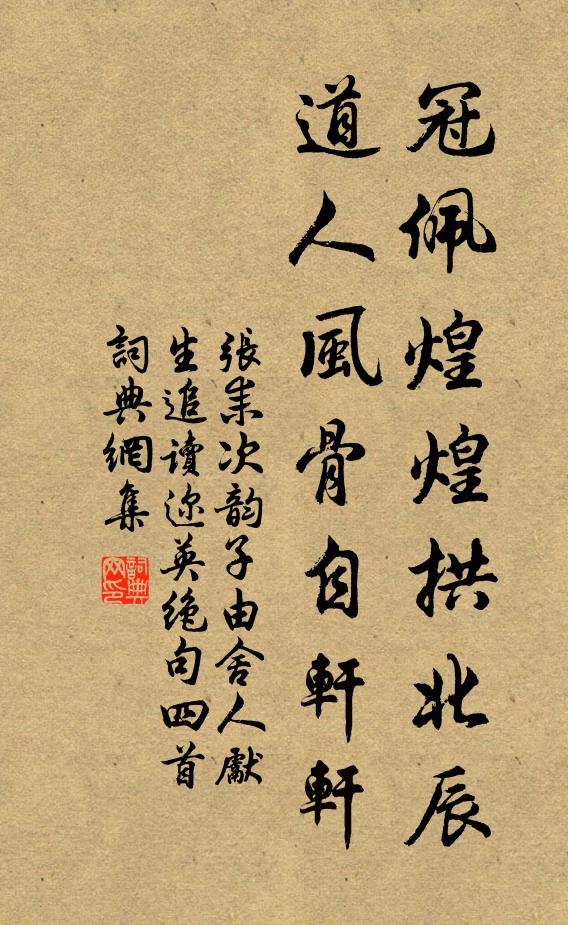 冠佩煌煌拱北辰
道人風骨自軒軒
張耒次韵子由舍人獻
生追讀迩英絶句四首
詞典網集
詞典网印